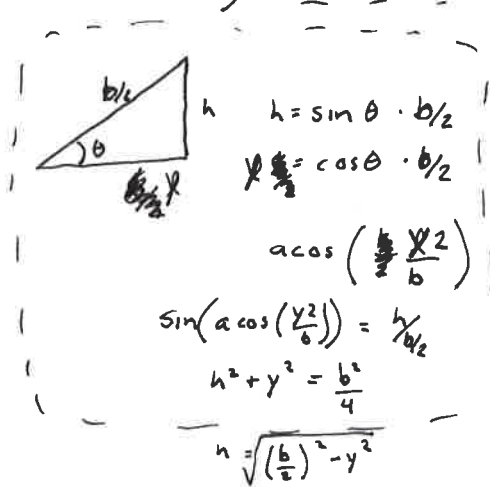 b/2
h
θ
y
h = sin θ · b/2
y = cos θ · b/2
acos (y2/b)
sin(acos(y2/b)) = h/b/2
h² + y² = b²/4
h = √(b/2)² - y²